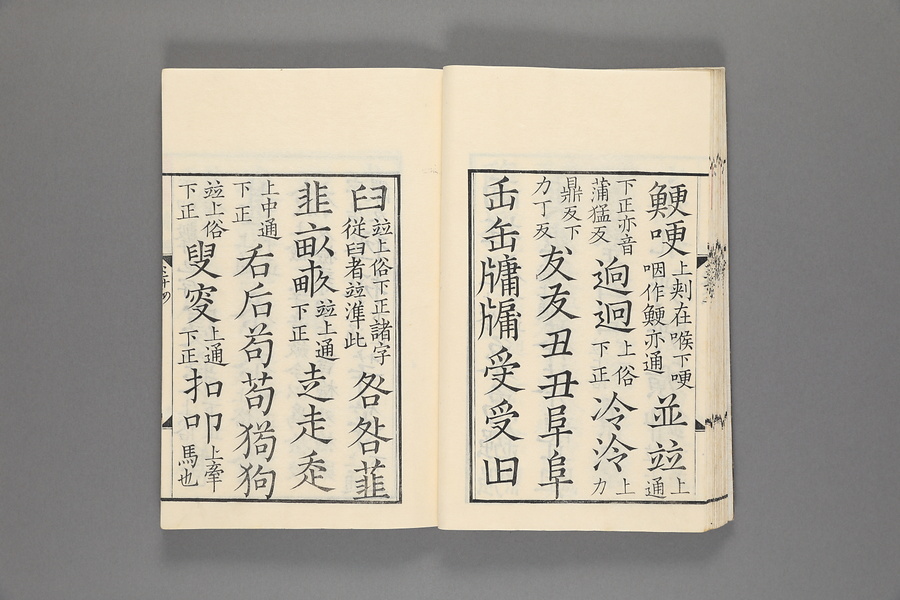 鯁哽上刺在喉下哽咽作鯁亦通並竝上通
下正亦音蒲猛反逈迥上俗下正冷泠上力
鼎反下力丁反友丑丑阜阜
缶缶牗牖受受臼
臼竝上俗下正諸字從臼者竝準此咎咎韮
韭畞竝上通下正赱走
上中通下正后后苟苟狗
竝上俗下正叟叜上通下正扣叩上牽馬也